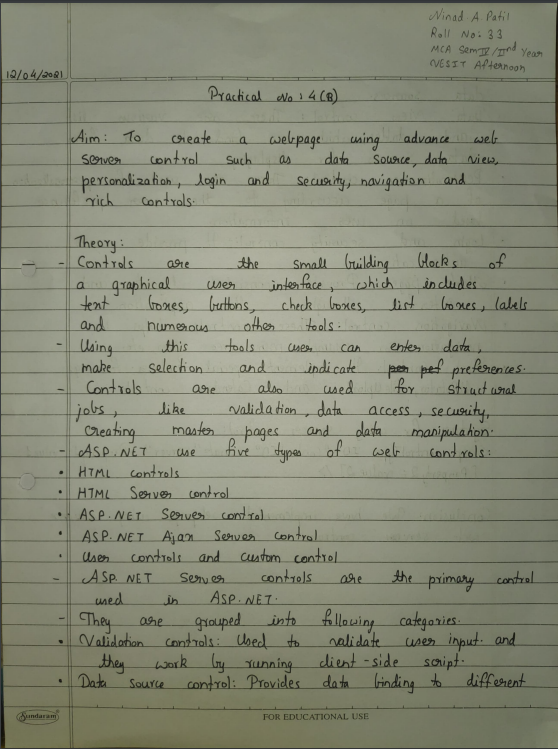 Ninad A. Patil
Roll No: 33
MCA Sem IV/IInd Year
VESIT Afternoon
12/04/2021
Practical No: 4(B)
Aim: To create a webpage using advance web
server control such as data source, data view,
personalization, login and security, navigation and
rich controls.
Theory:
- Controls are the small building blocks of
a graphical user interface, which includes
text boxes, buttons, check boxes, list boxes, labels
and numerous other tools.
- Using this tools user can enter data,
make selection and indicate preferences.
- Controls are also used for structural
jobs, like validation, data access, security,
creating master pages and data manipulation.
- ASP.NET use five types of web controls:
• HTML controls
• HTML Server control
• ASP.NET Server control
• ASP.NET Ajax Server control
• User controls and custom control
- ASP.NET Server controls are the primary control
used in ASP.NET.
- They are grouped into following categories.
• Validation controls: Used to validate user input and
they work by running client-side script.
• Data Source control: Provides data binding to different
Sundaram
FOR EDUCATIONAL USE